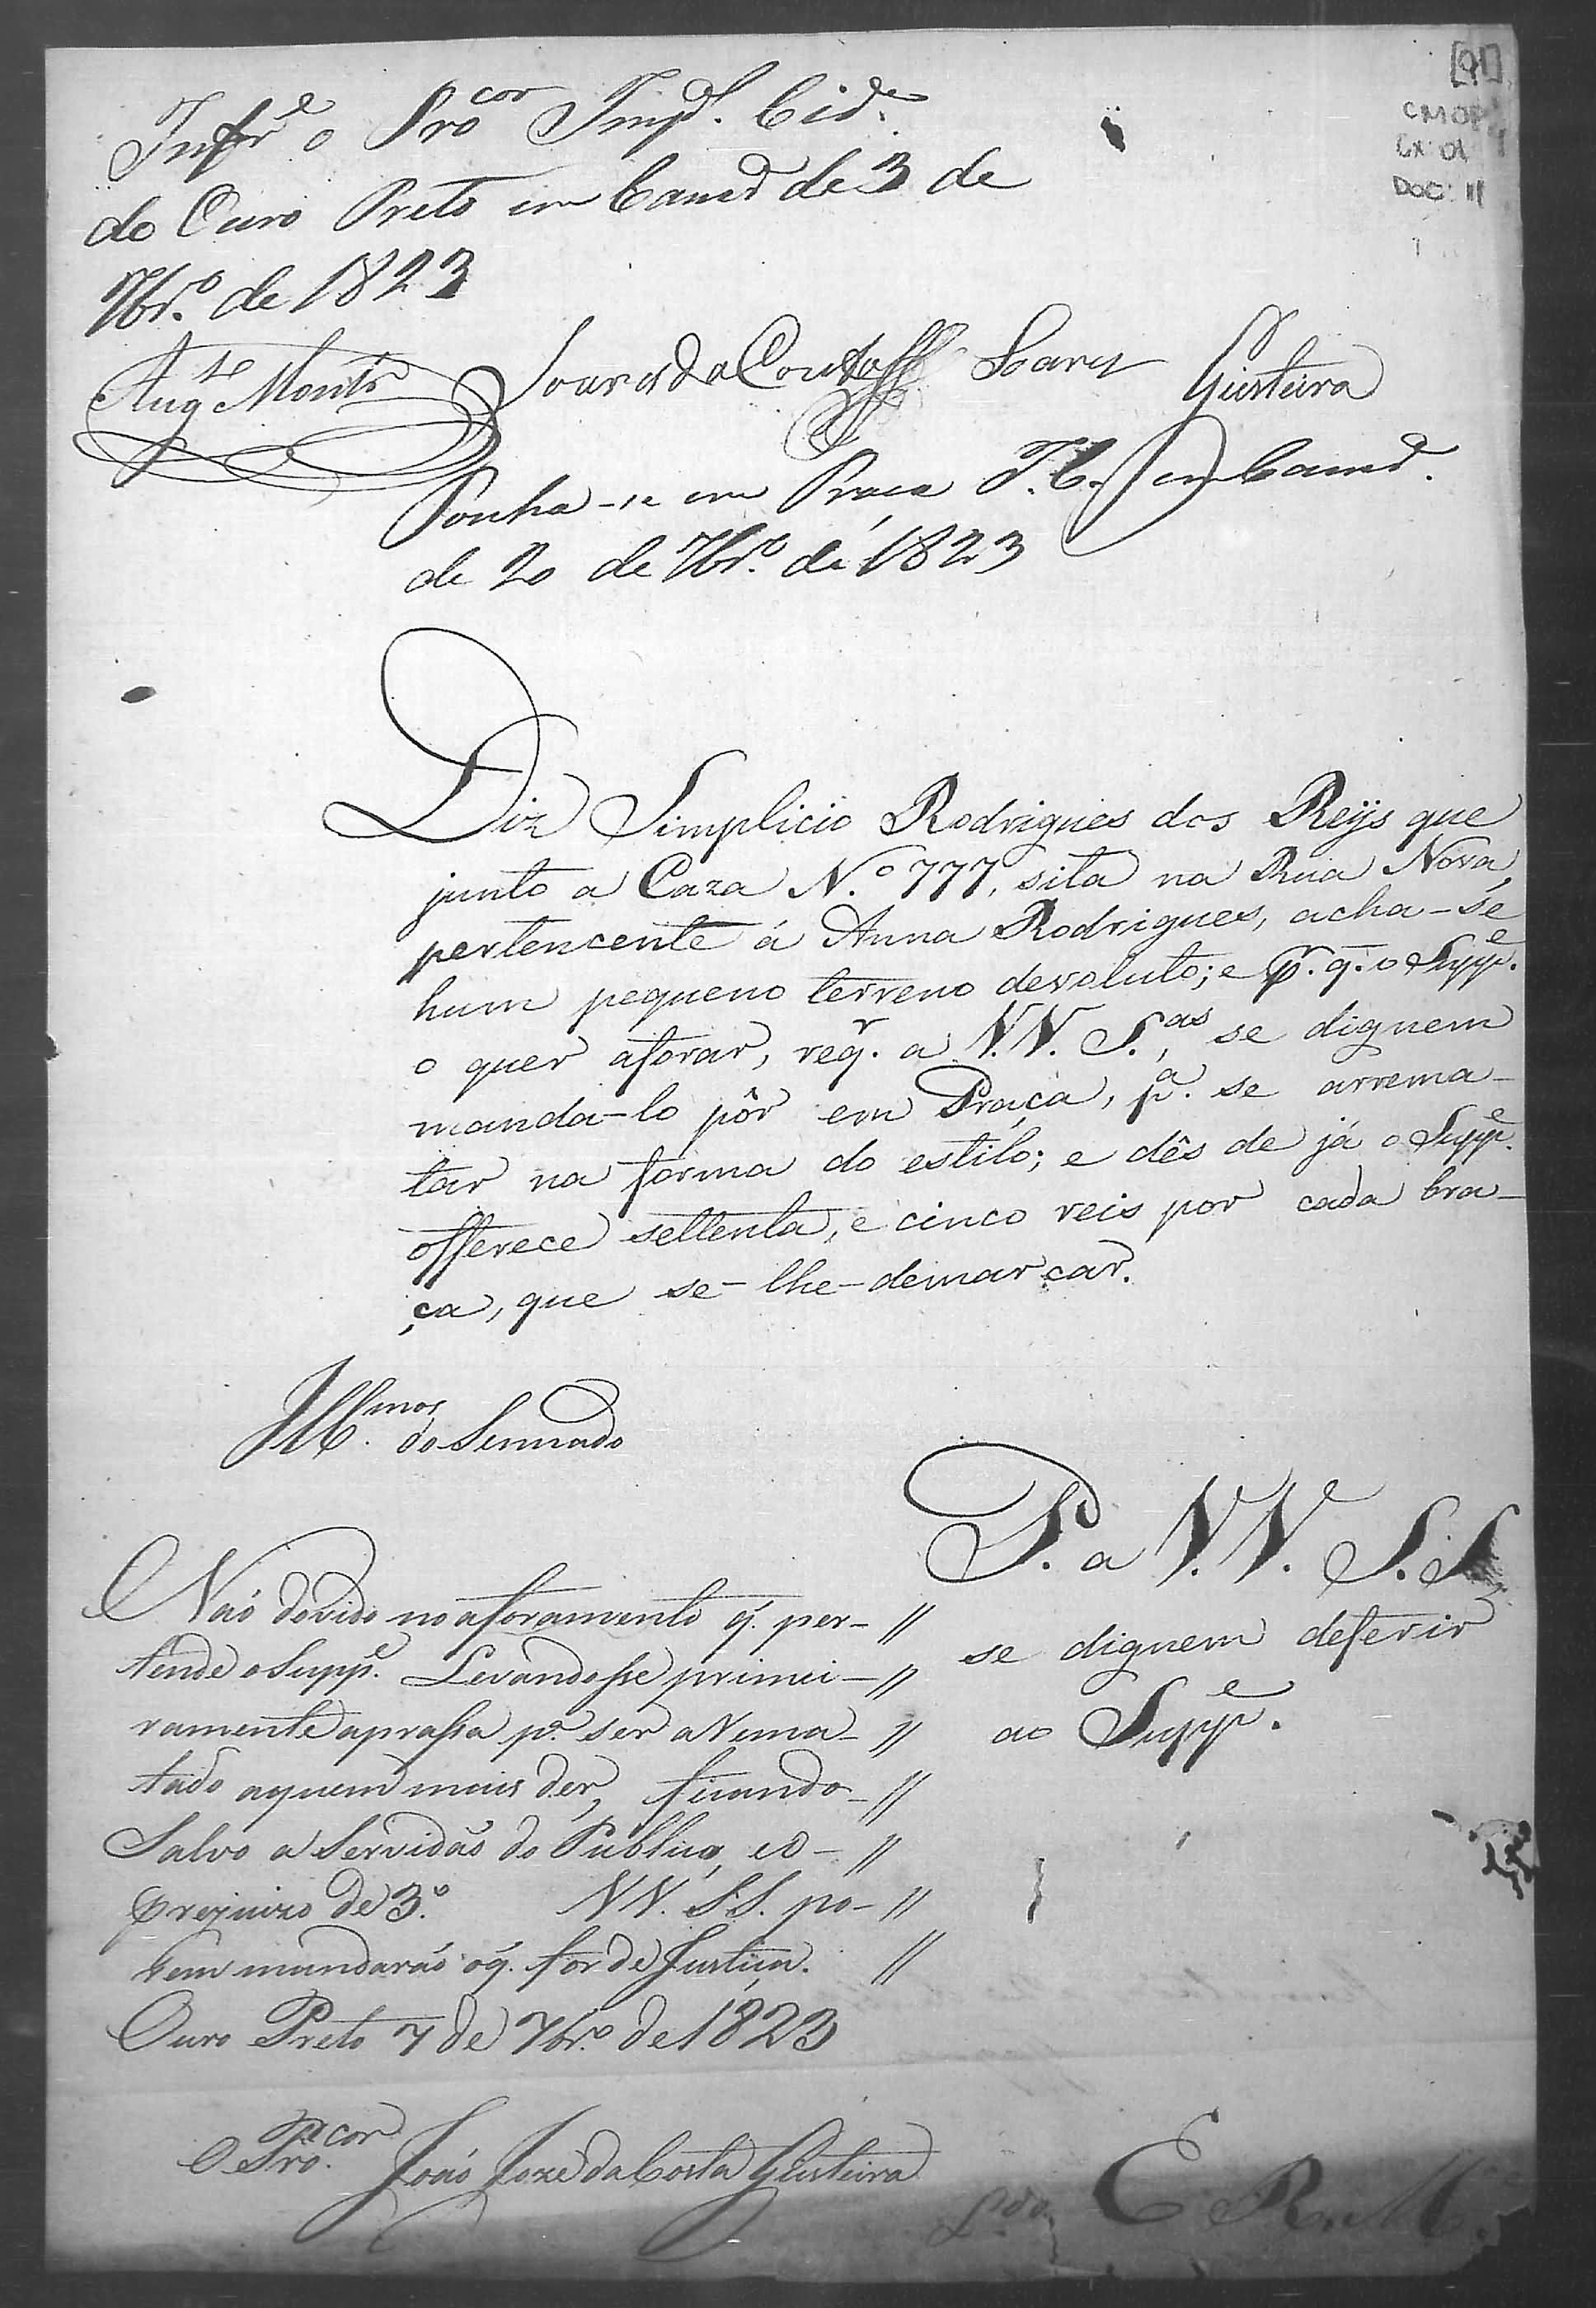 [91]
CMOP
Cx: 01
DOC: 11
Infr.e o Pro.cor Imp.l Cid.e
do Ouro Preto em Camr.a de 3 de
7br.o de 1823
Aug.to Montr.o Soares Gusteiro
Ponha-se em Praça I. C. em Camr.a
de 20 de 7br.o de 1823
Diz Simplicio Rodrigues dos Reijs que
junto a Caza N.o 777, sita na Rua Nova,
pertencente á Anna Rodrigues, acha-se
hum pequeno terreno devoluto; e p.r q. o Supp.e
o quer aforar, req.r a V.V. S.as, se dignem
manda-lo pôr em Praça, p.a se arrema-
tar na forma do estilo; e dês de já o Supp.e
offerece settenta, e cinco reis por cada bra-
ça, que se-lhe-demarcar.
Ill.mos do Sennado
P. a V.V. S.S.
se dignem deferir
ao Supp.e
Naó dovido no aforamento q. per-//
tende o Supp.e Levandosse primei-//
ramente aprassa p.a ser aRema-//
tado aquem mais der, ficando-//
Salvo a Servidão do Publico, eo-//
prejuizo de 3.o VV. SS. po-//
rem mandaráó oq. for de Justiça. //
Ouro Preto 7 de 7br.o de 1823
O Pro.cor Joáo Joze da Costa Gusteiro
E R. M.